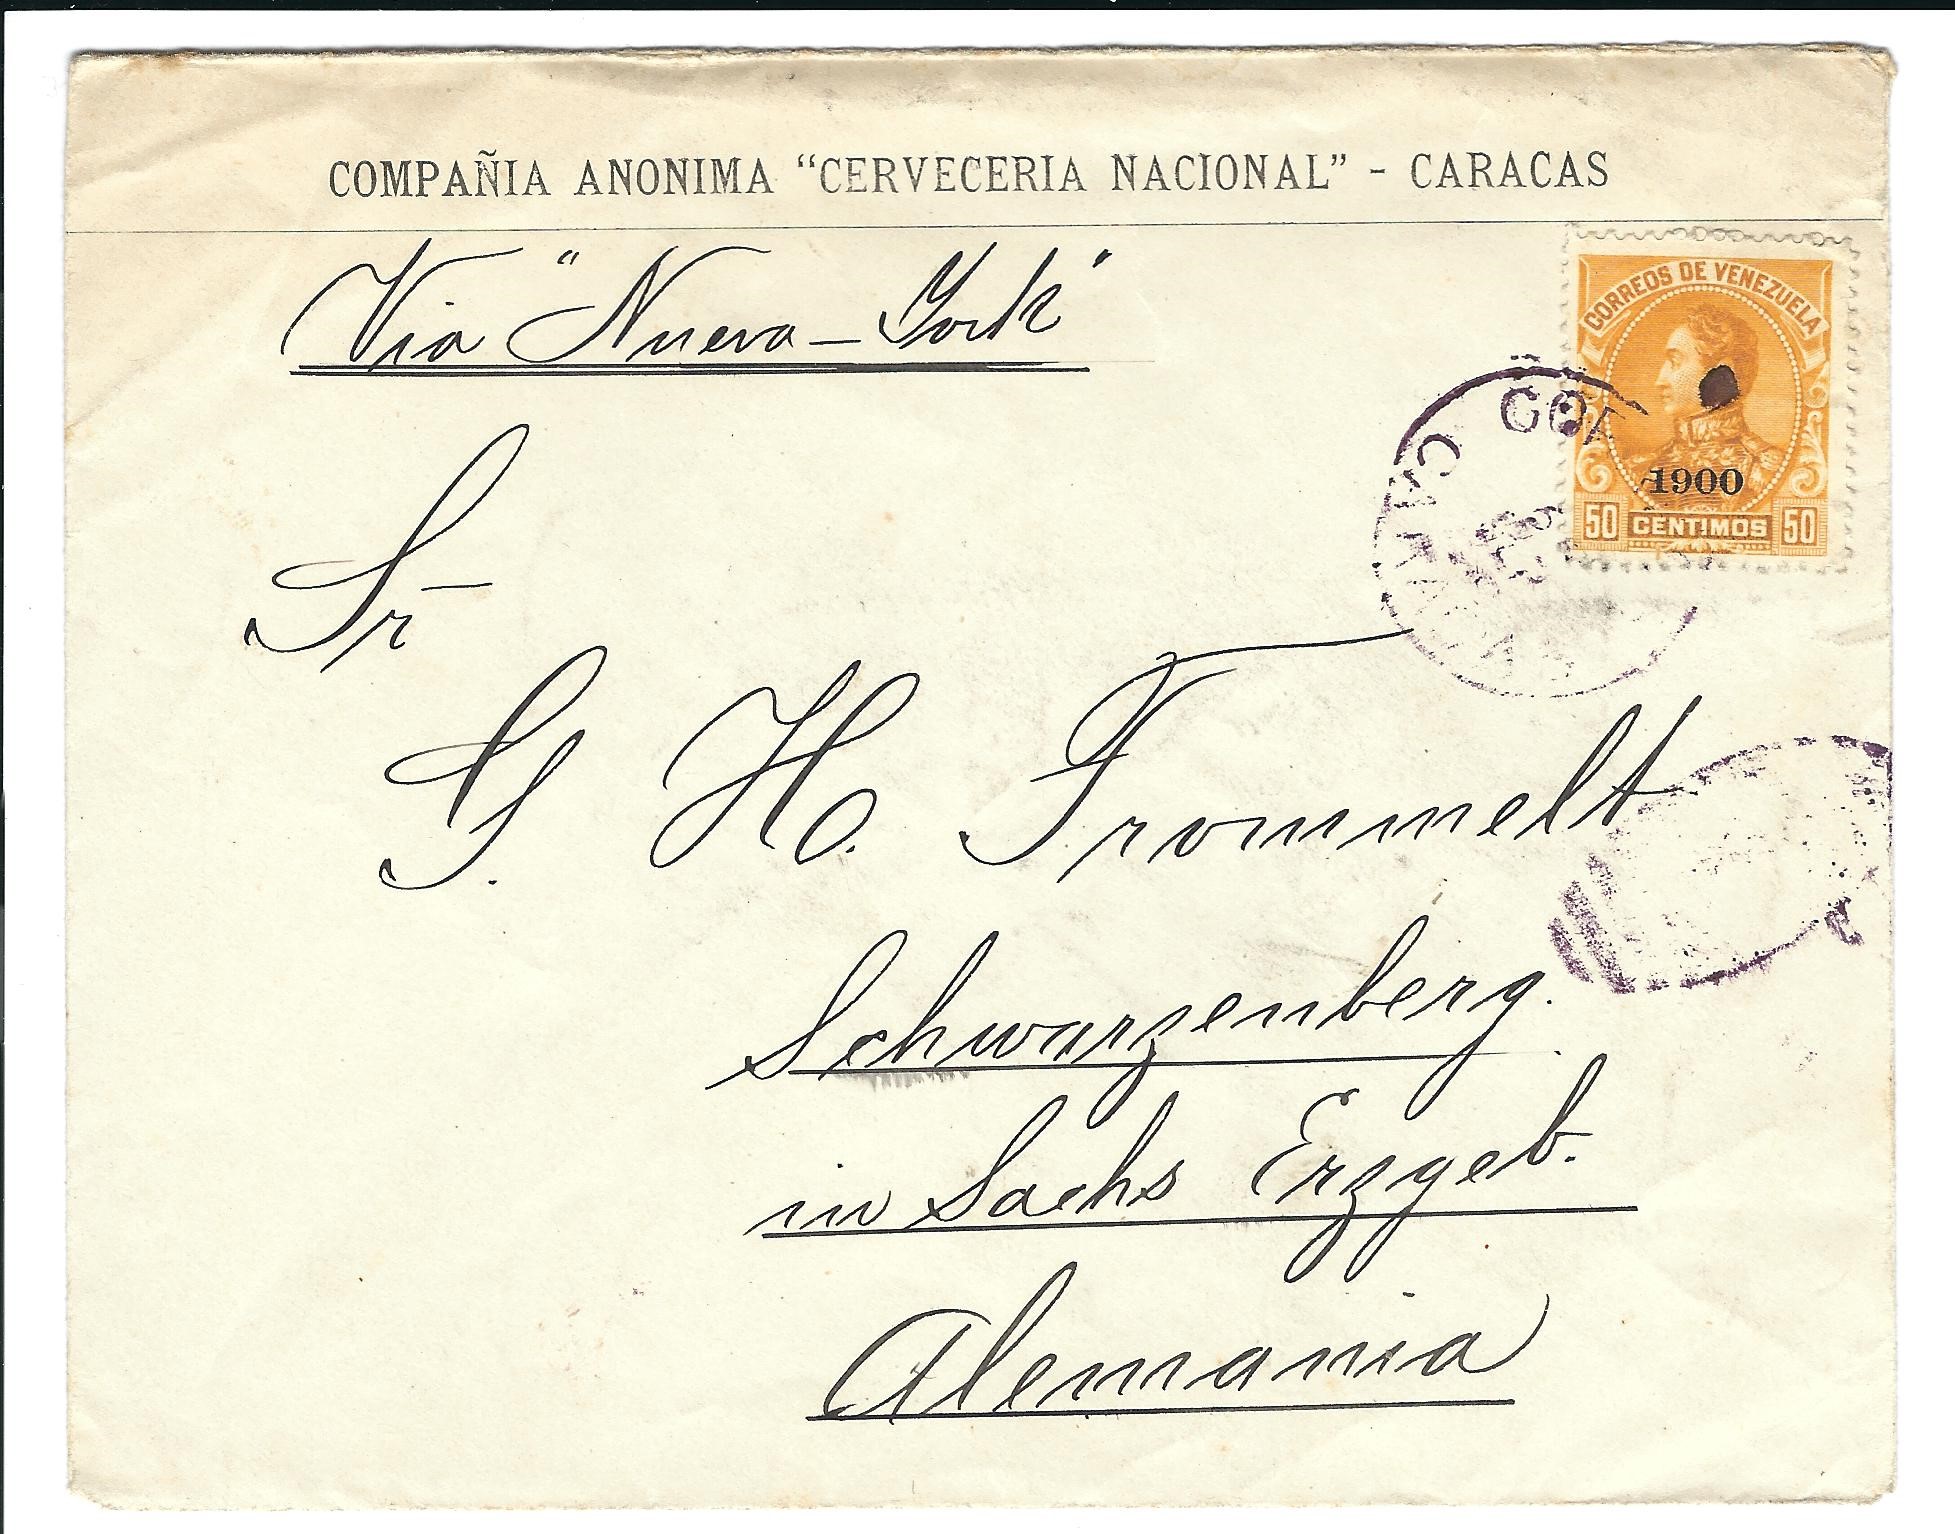 COMPAÑIA ANONIMA “CERVECERIA NACIONAL” - CARACAS
Via "Nueva-York"
CORREOS DE VENEZUELA
1900
50 CENTIMOS 50
Sr
G. H. Trommelt
Schwarzenberg.
in Sachs Erzgeb.
Alemania